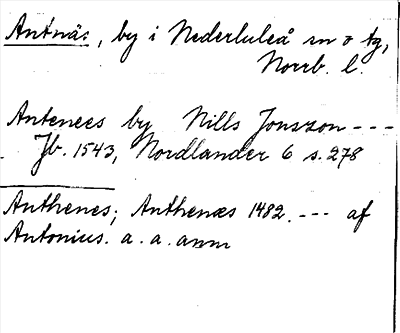 Antnäs, by i Nederluleå sn o tg,
Norrb. l.
Antenees by Nills Jonszon ---
Jb. 1543, Nordlander 6 s. 278
Anthenes; Anthenæs 1482. --- af
Antonius. a. a. anm